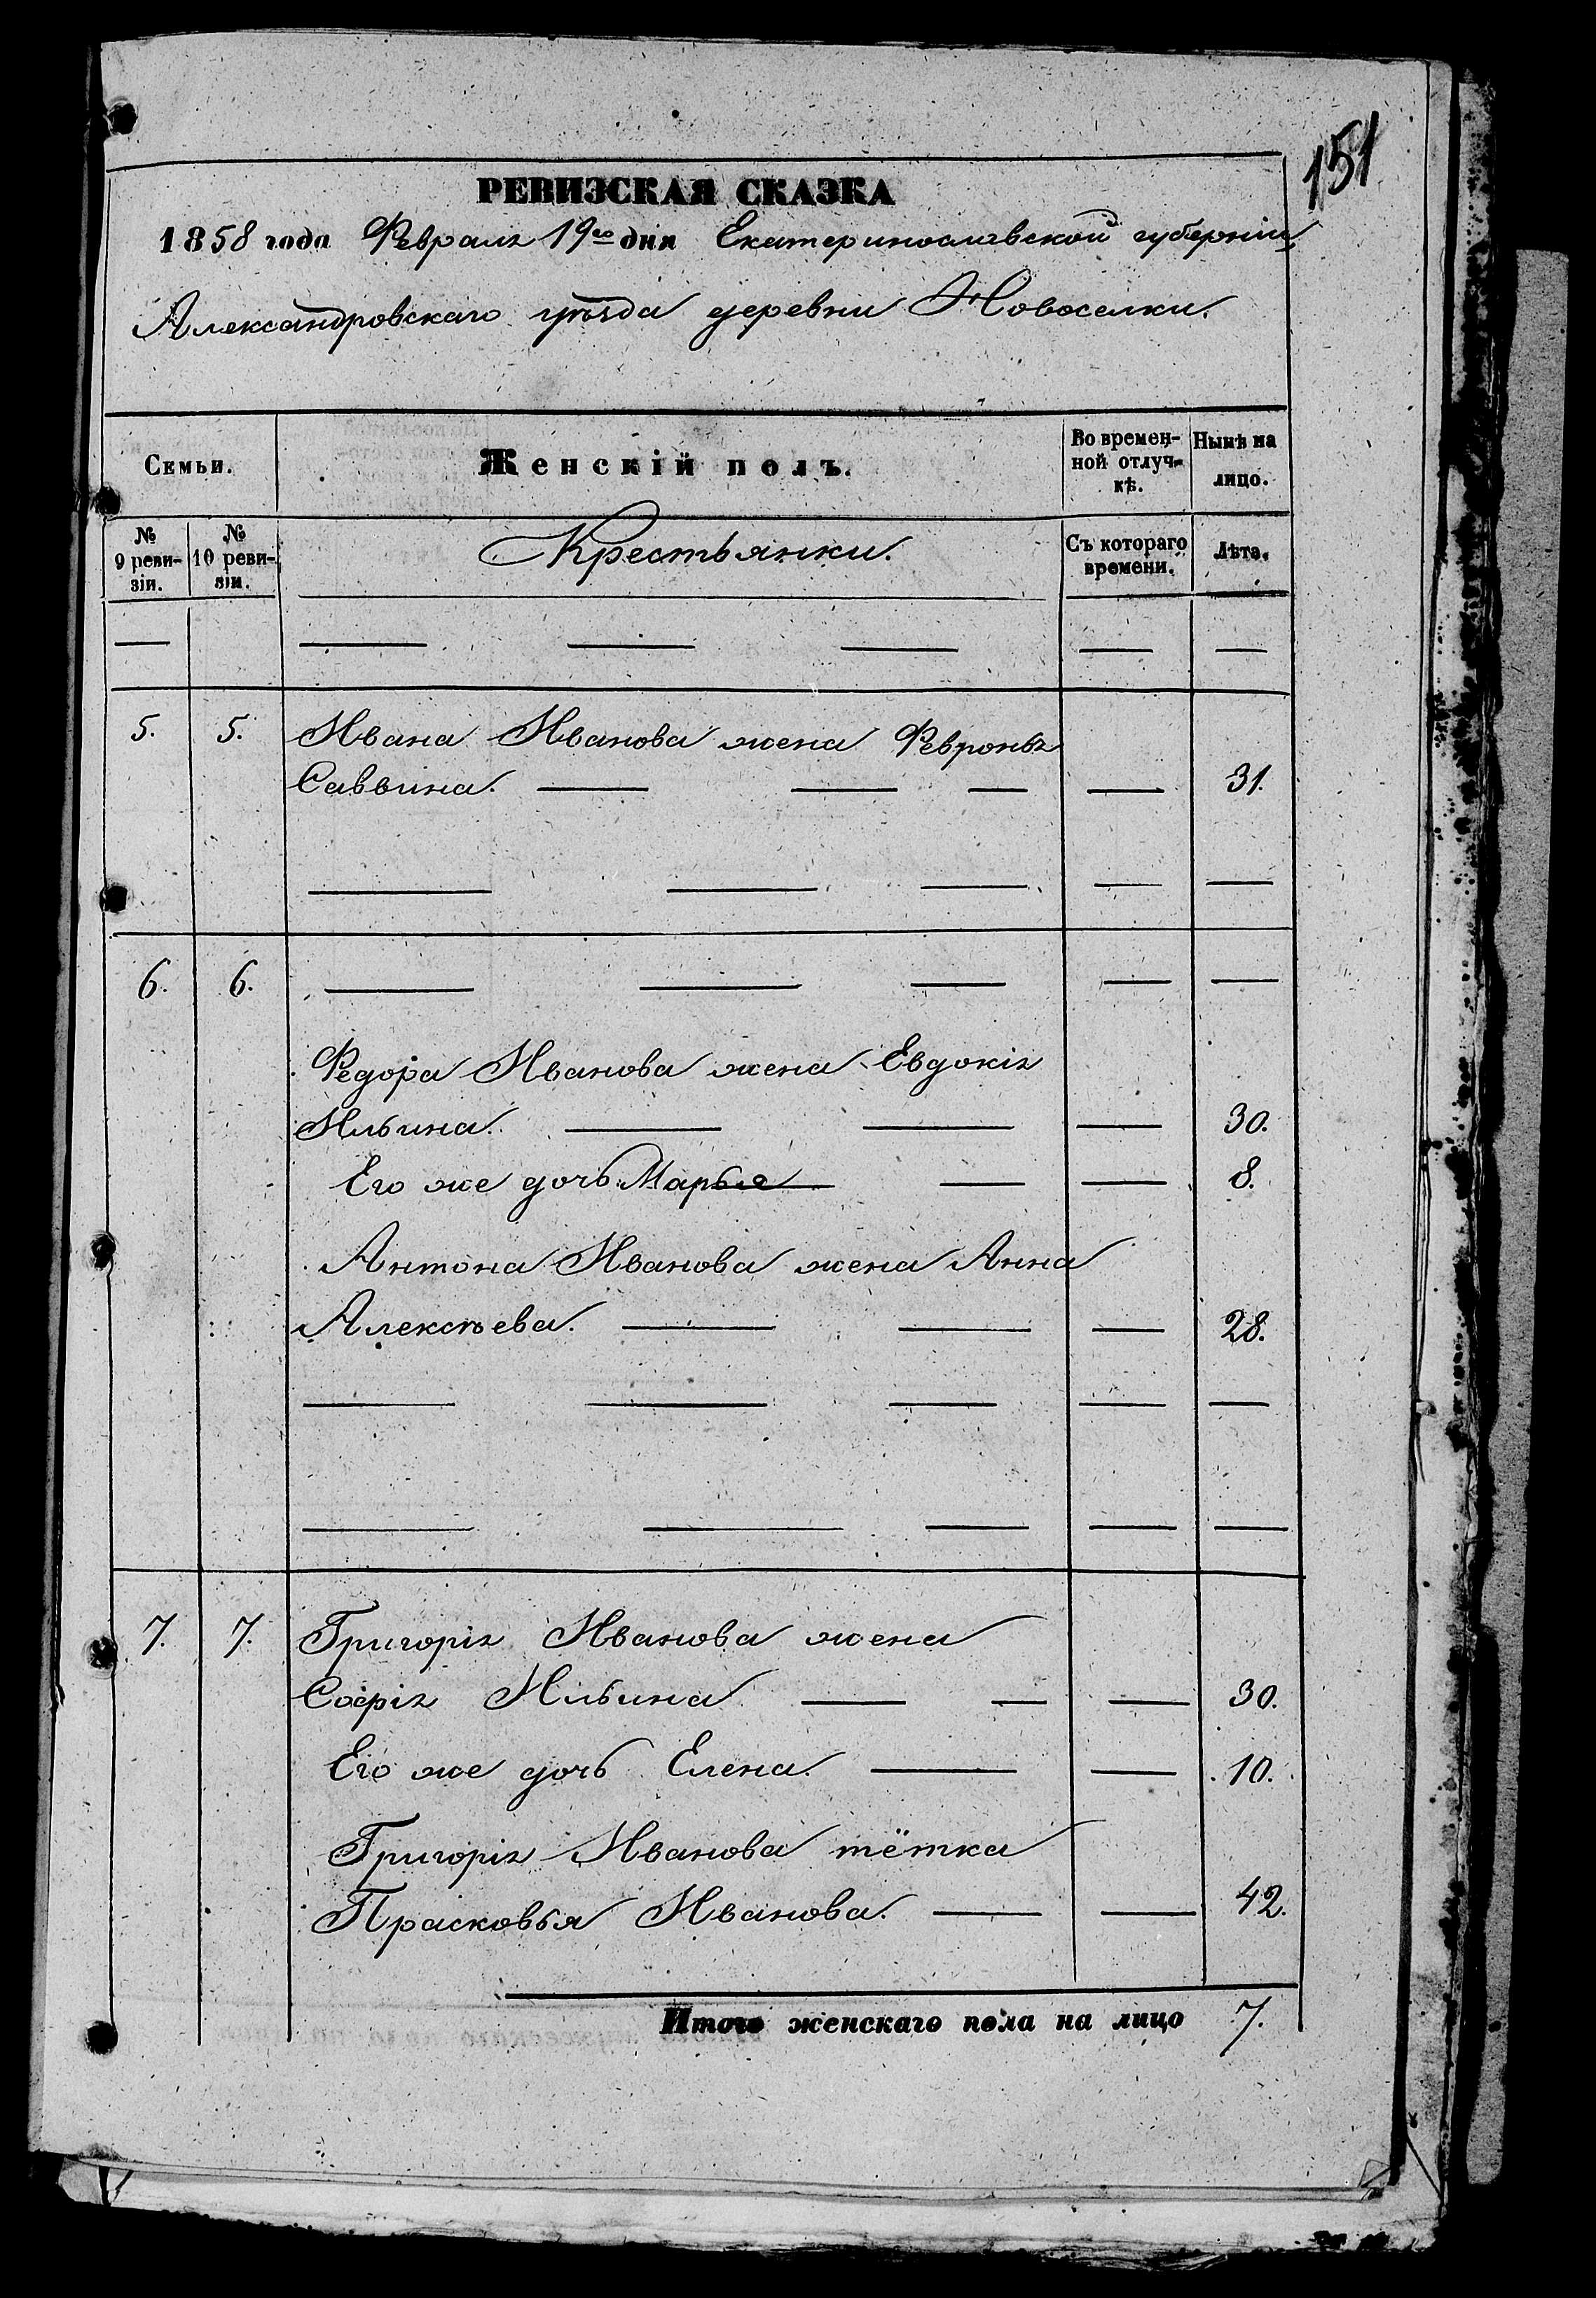 151
РЕВИЗСКАЯ СКАЗКА
1858 года Февраля 19го дня Екатеринославской губерніи,
Александровскаго уѣзда деревни Новоселки.
Семьи.
Женскій полъ.
Во времен-
ной отлуч-
кѣ.
Нынѣ на
лицо.
№
9 реви-
зіи.
№
10 реви-
зіи.
Крестьянки.
Съ котораго
времени.
Лѣта.
5. 5. Ивана Иванова жена Февронья
Саввина. 31.
6. 6.
Федора Иванова жена Евдокія
Ильина. 30.
Его же дочь Марья 8.
Антона Иванова жена Анна
Алексѣева. 28.
7. 7. Григорія Иванова жена
Софія Ильина 30.
Его же дочь Елена. 10.
Григорія Иванова тётка
Прасковья Иванова. 42.
Итого женскаго пола на лицо 7.